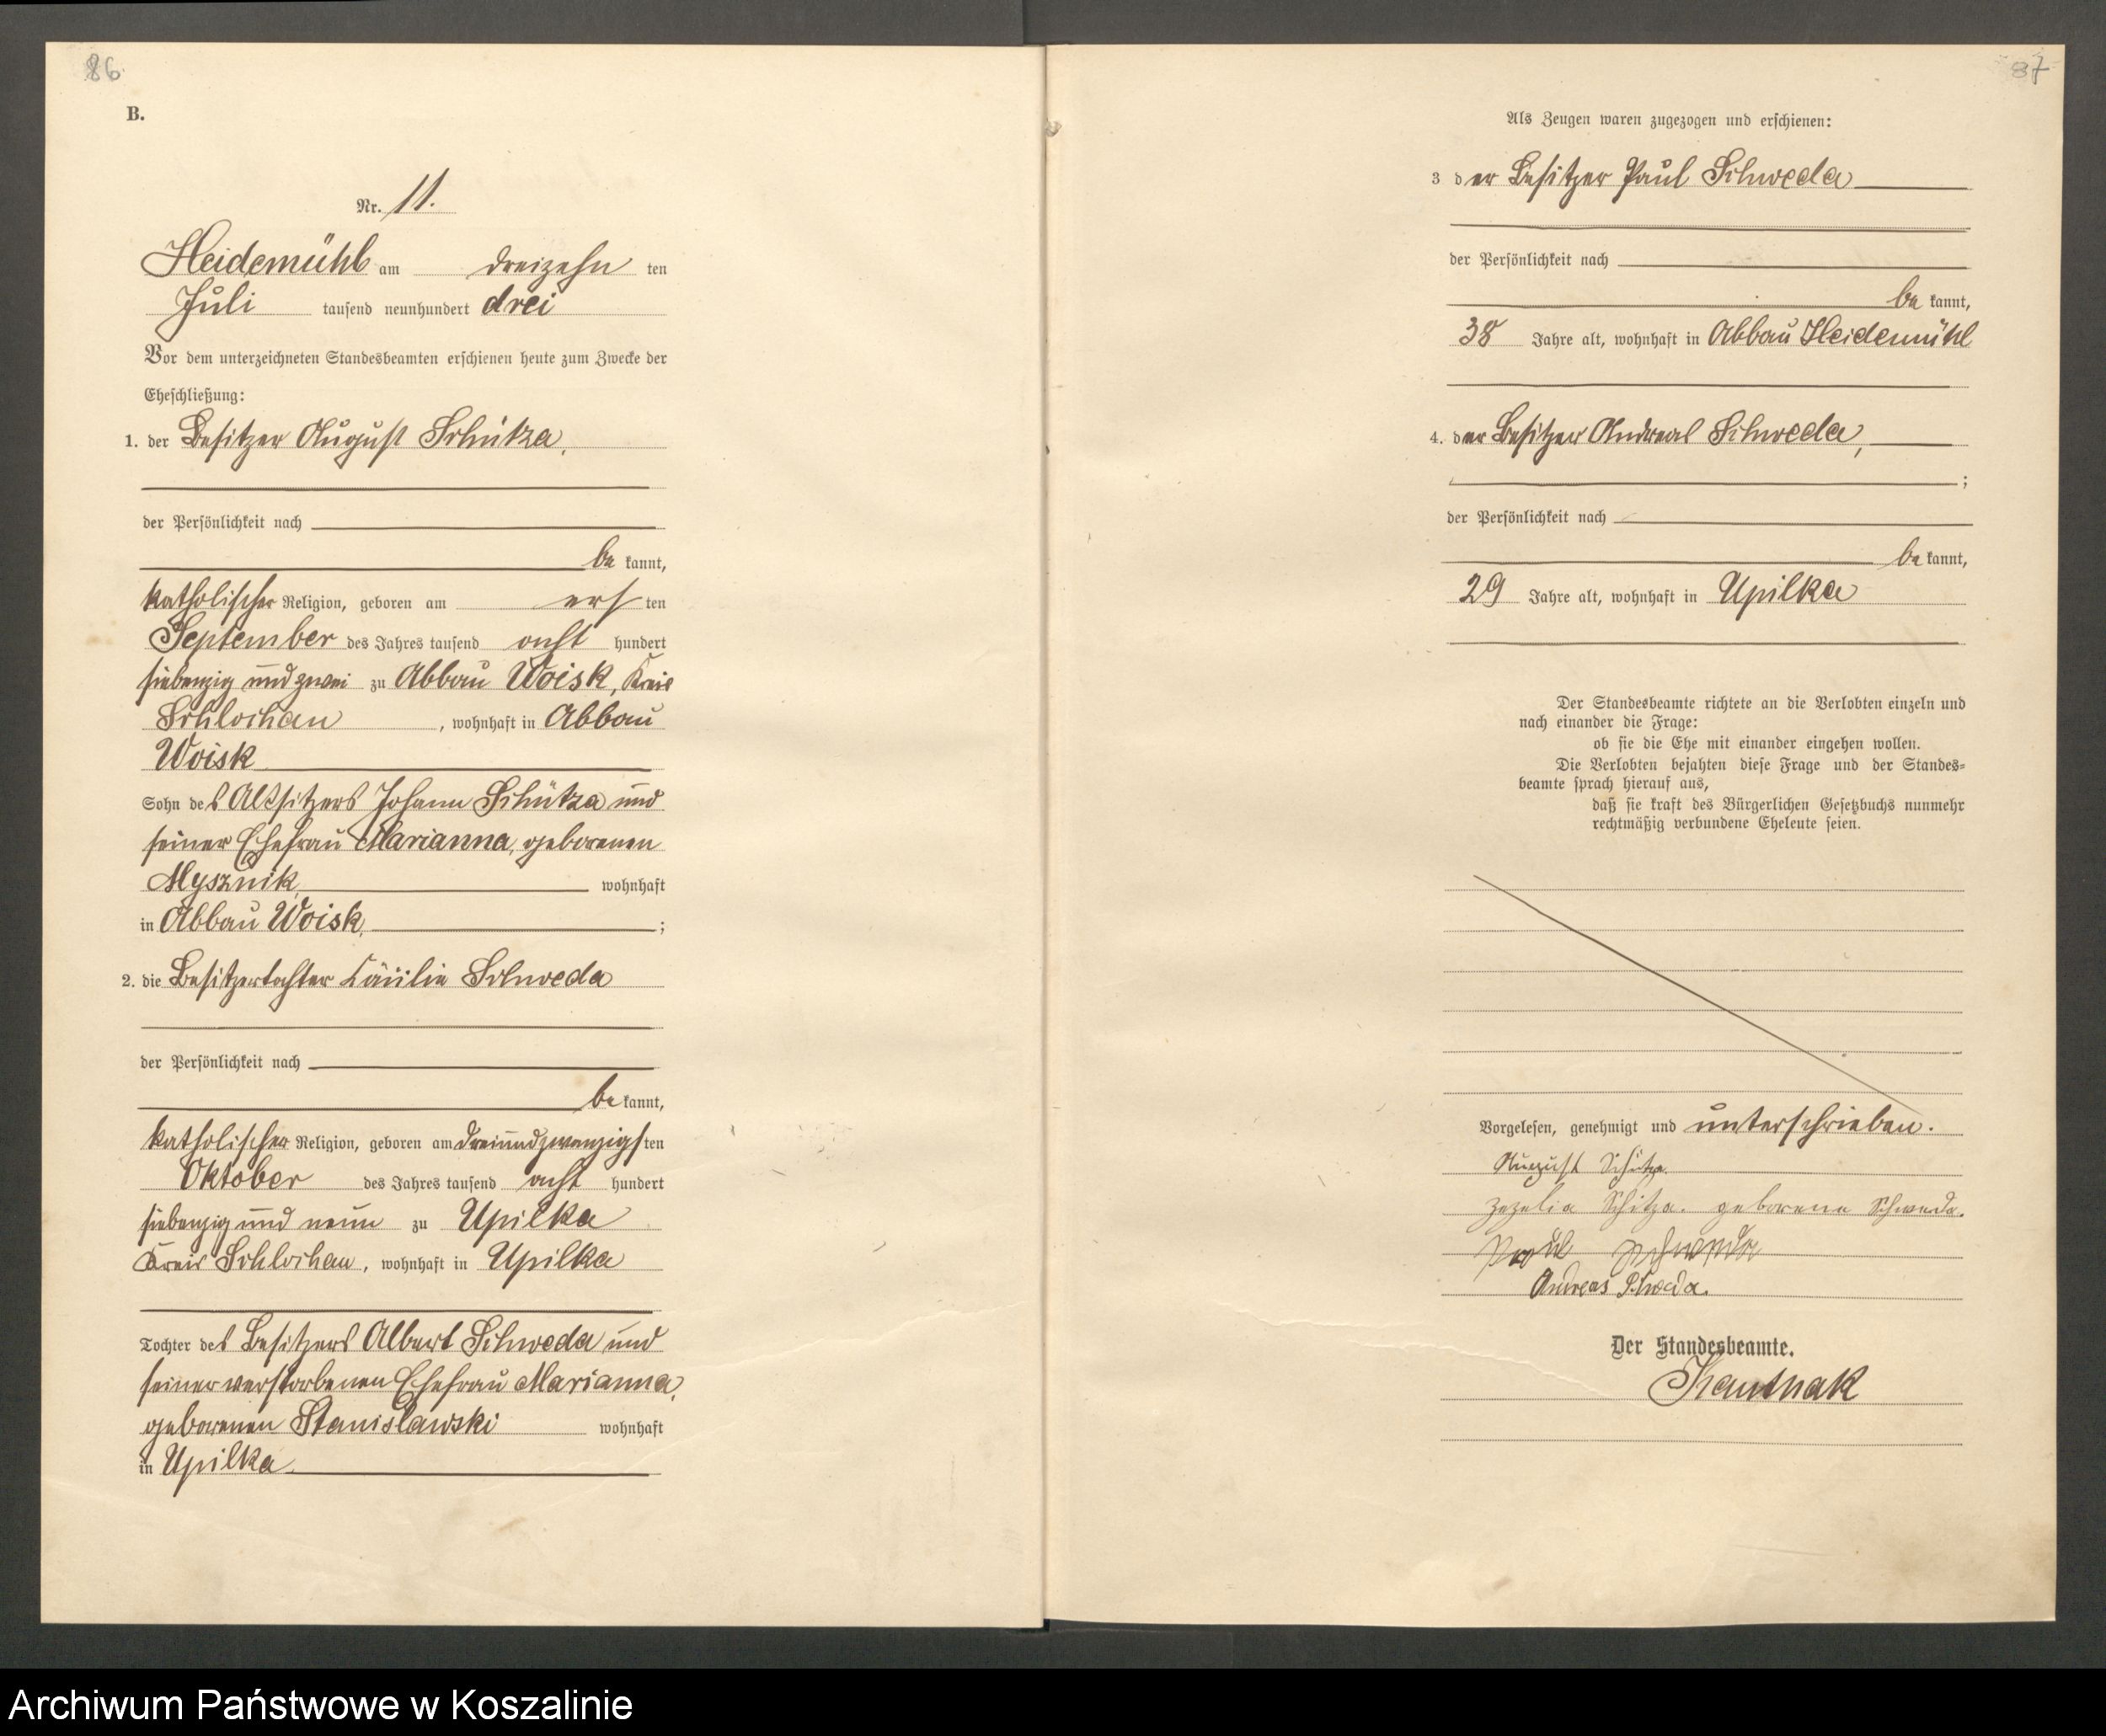 86
B.
Nr. 11.
Heidemühl am dreizehn ten
Juli tausend neunhundert drei
Vor dem unterzeichneten Standesbeamten erschienen heute zum Zwecke der
Eheschließung:
1. der Besitzer August Schütza,
der Persönlichkeit nach
be kannt,
katholischer Religion, geboren am erst ten
September des Jahres tausend acht hundert
siebenzig und zwei zu Abbau Woisk, Kreis
Schlochau, wohnhaft in Abbau
Woisk
Sohn des Altsitzers Johann Schütza und
seiner Ehefrau Marianna, geborenen
Mysznik, wohnhaft
in Abbau Woisk, ;
2. die Besitzertochter Cäcilie Schweda
der Persönlichkeit nach
be kannt,
katholischer Religion, geboren am dreiundzwanzigsten
Oktober des Jahres tausend acht hundert
siebenzig und neun zu Upilka
Kreis Schlochau, wohnhaft in Upilka
Tochter des Besitzers Albert Schweda und
seiner verstorbenen Ehefrau Marianna,
geborenen Stanislawski wohnhaft
in Upilka.
87
Als Zeugen waren zugezogen und erschienen:
3 der Besitzer Paul Schweda
der Persönlichkeit nach
be kannt,
38 Jahre alt, wohnhaft in Abbau Heidemühl
4. der Besitzer Andreas Schweda,
;
der Persönlichkeit nach
be kannt,
29 Jahre alt, wohnhaft in Upilka
Der Standesbeamte richtete an die Verlobten einzeln und
nach einander die Frage:
ob sie die Ehe mit einander eingehen wollen.
Die Verlobten bejahten diese Frage und der Standes=
beamte sprach hierauf aus,
daß sie kraft des Bürgerlichen Gesetzbuchs nunmehr
rechtmäßig verbundene Eheleute seien.
Vorgelesen, genehmigt und unterschrieben.
August Schütza.
Zezelia Schitza. geborene Schweda.
Paul Schweda
Andreas Schweda.
Der Standesbeamte.
Kautnak
Archiwum Państwowe w Koszalinie